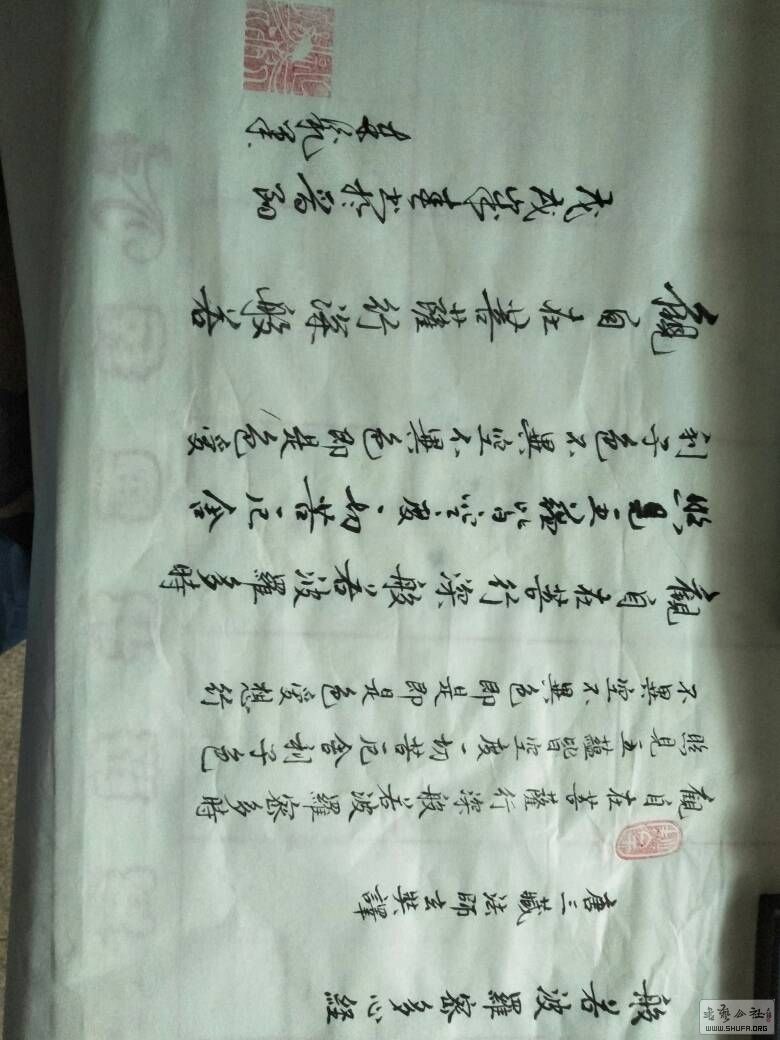 般若波羅密多心經
唐三藏法師玄奘譯
觀自在菩薩行深般若波羅密多時
照見五蘊皆空度一切苦厄舍利子色
不異空不異色即是即是色受想行
觀自在菩行深般若波羅多時
照見五蘊皆空度一切苦厄舍
利子色不異空不異色即是色受
觀自在菩薩行深般若
戊戌
WWW.SHUFA.ORG